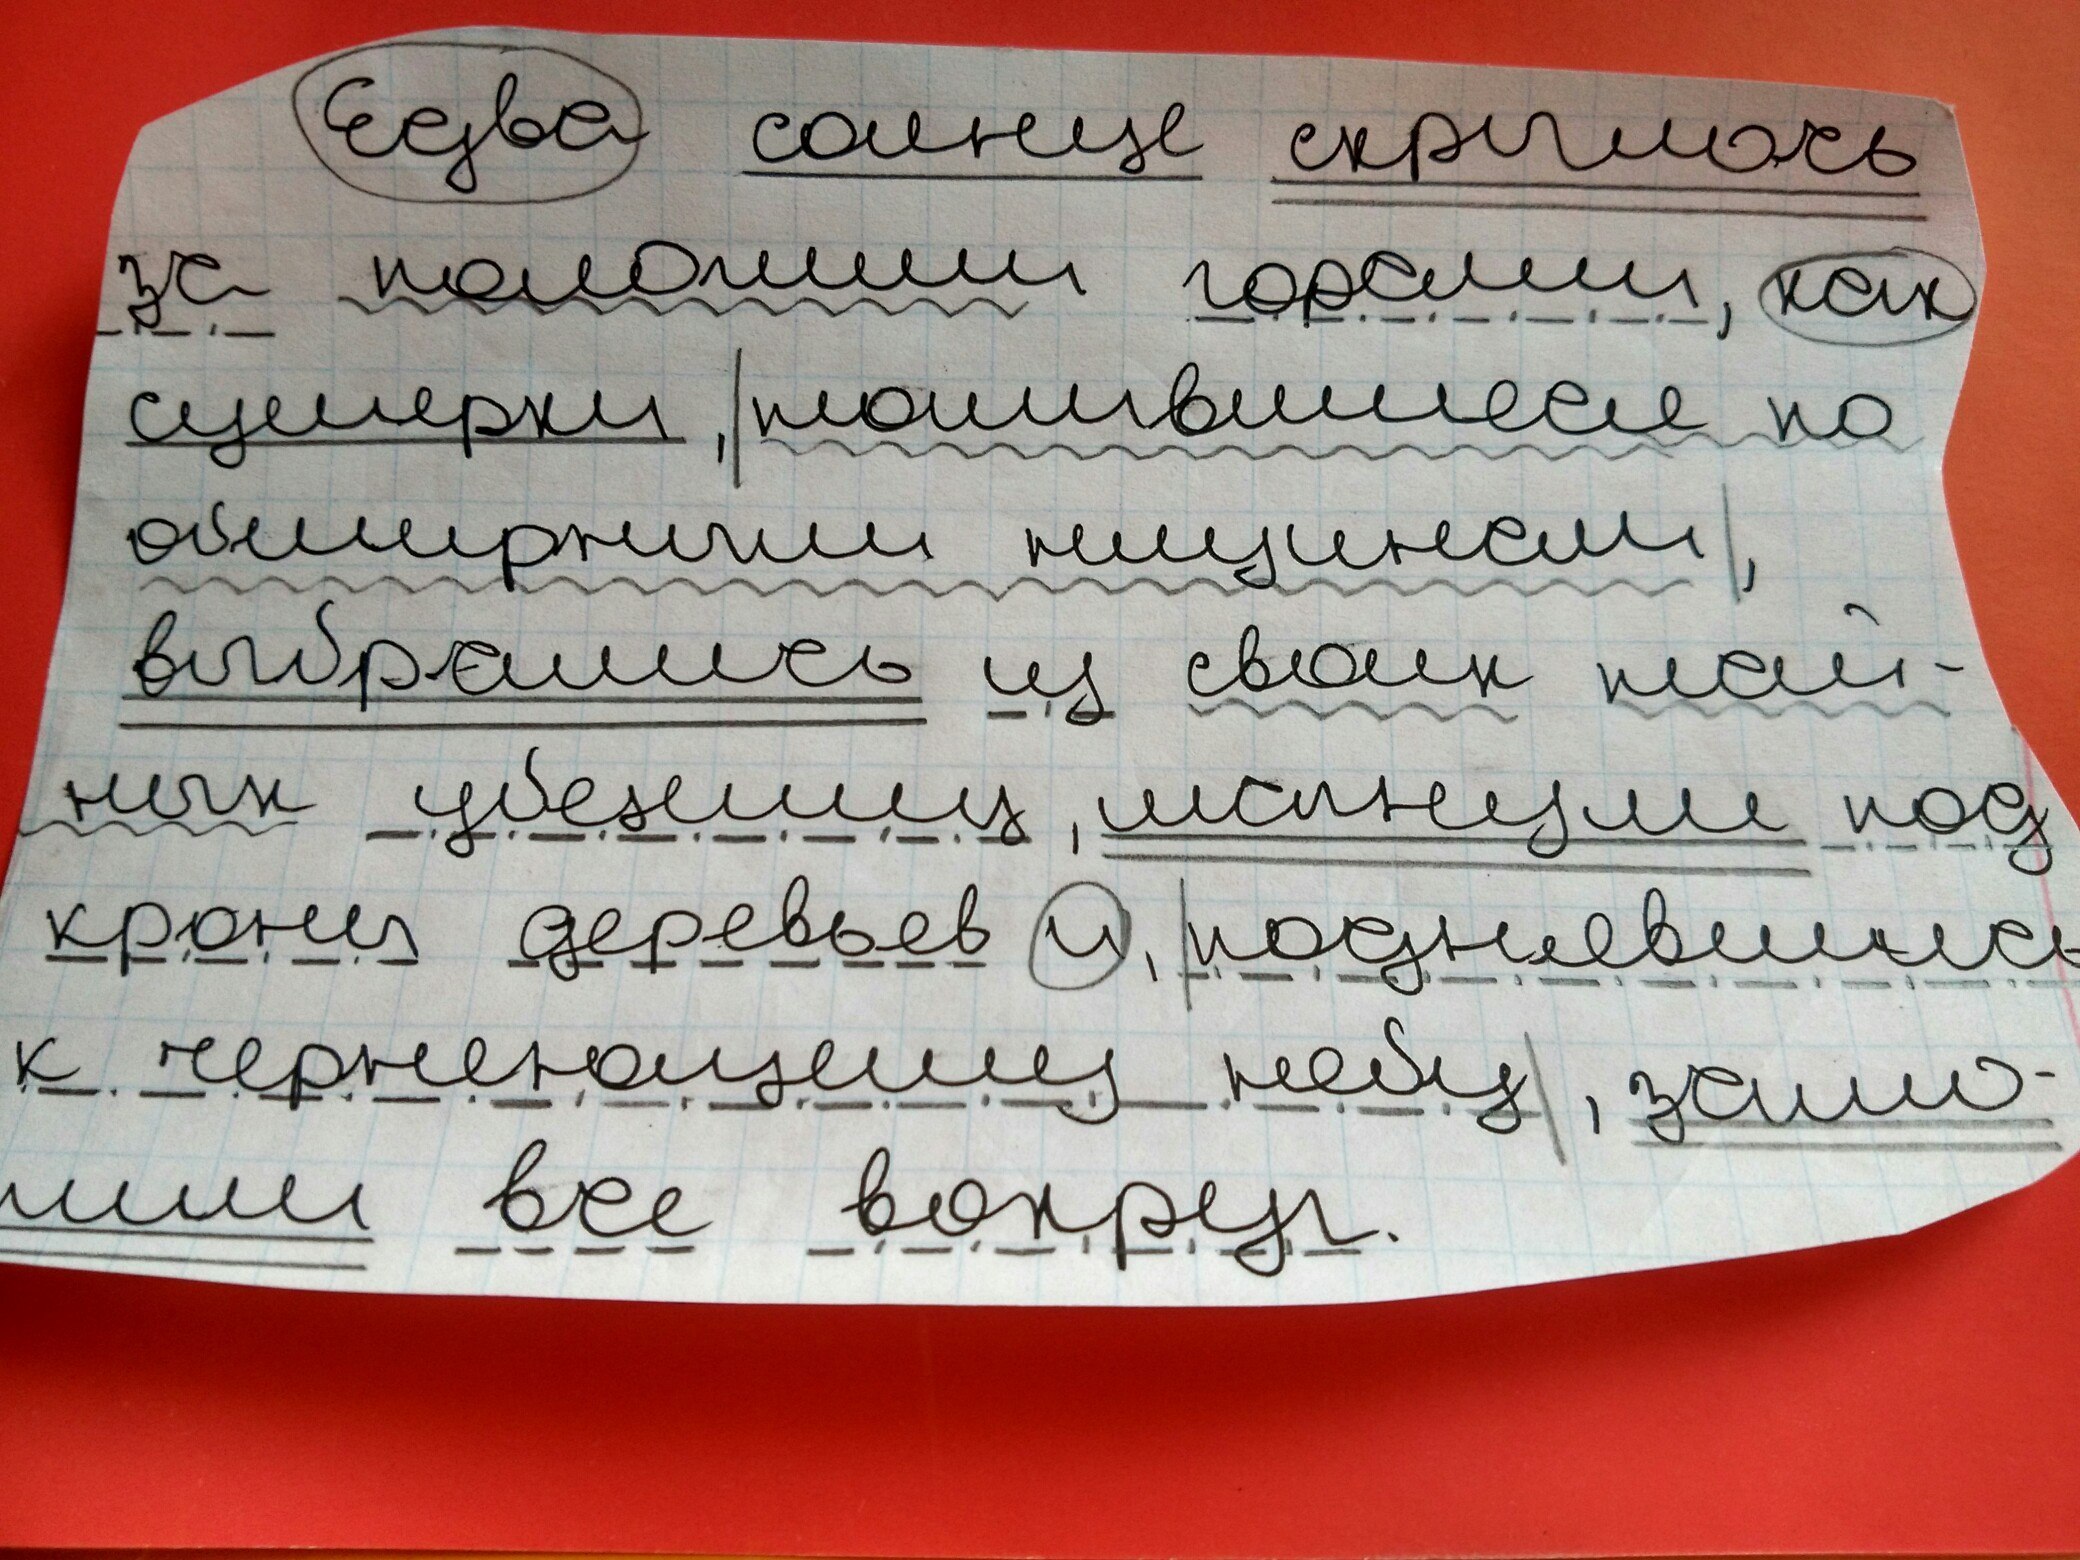 Едва солнце скрылось
за пологими горами, как
сумерки, таившиеся по
обширным низинам,
выбрались из своих тай-
ных убежищ, шмыгнули под
кроны деревьев и, поднявшись
к чернеющему небу, запо-
лнили все вокруг.